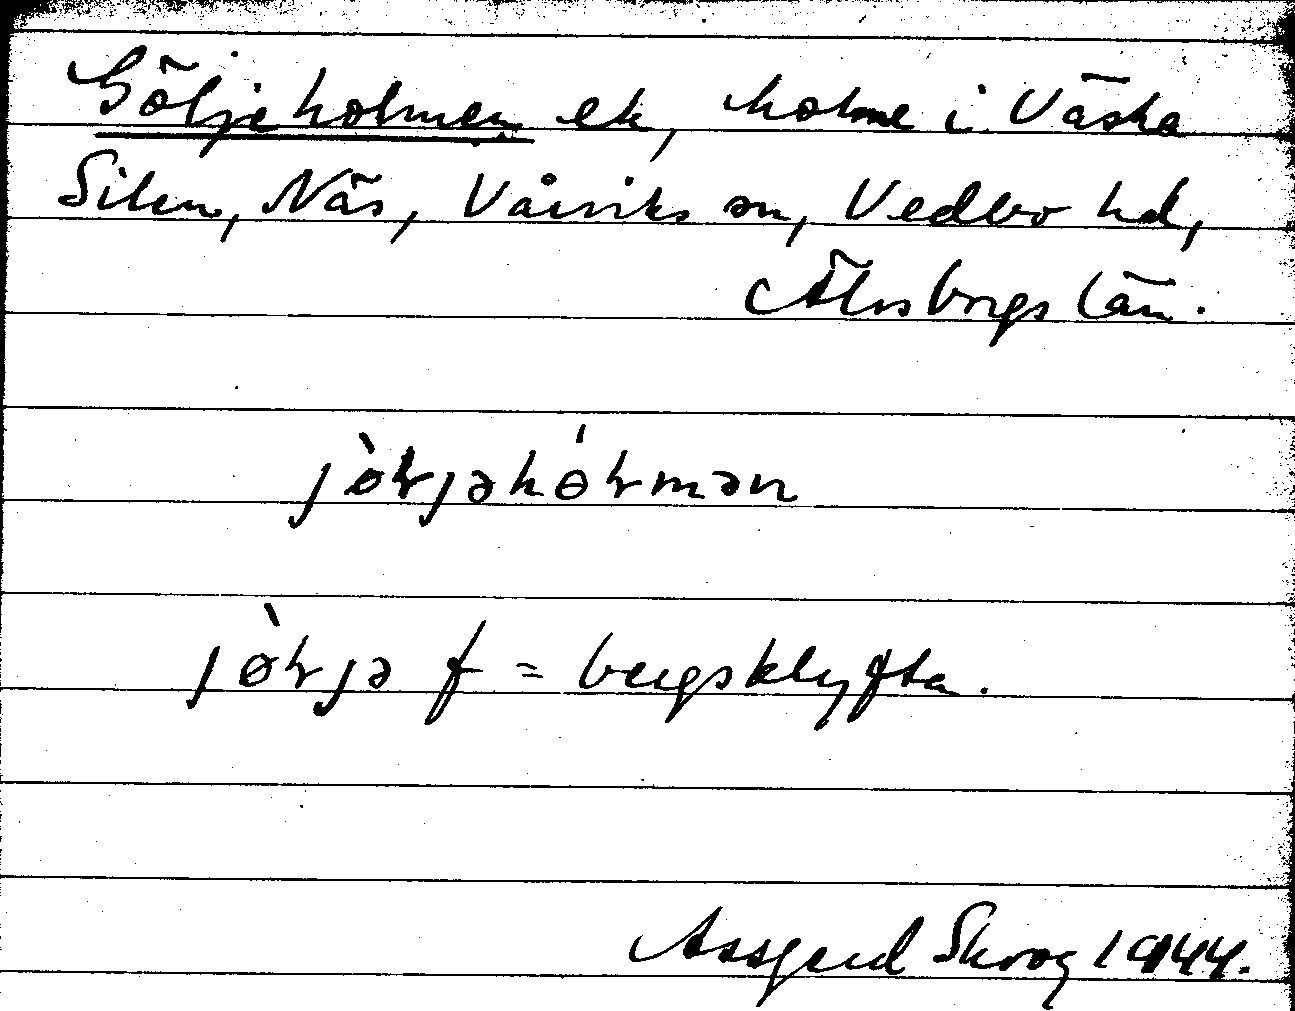 Göljeholmen ek, holme i Västra
Silen, Näs, Vårviks sn, Vedbo hd,
Älvsborgs län.
jò̵ɫjəhɵ́ɫmən
jø̀ɫjə f = bergsklyfta.
Assgerd Skrog 1944.